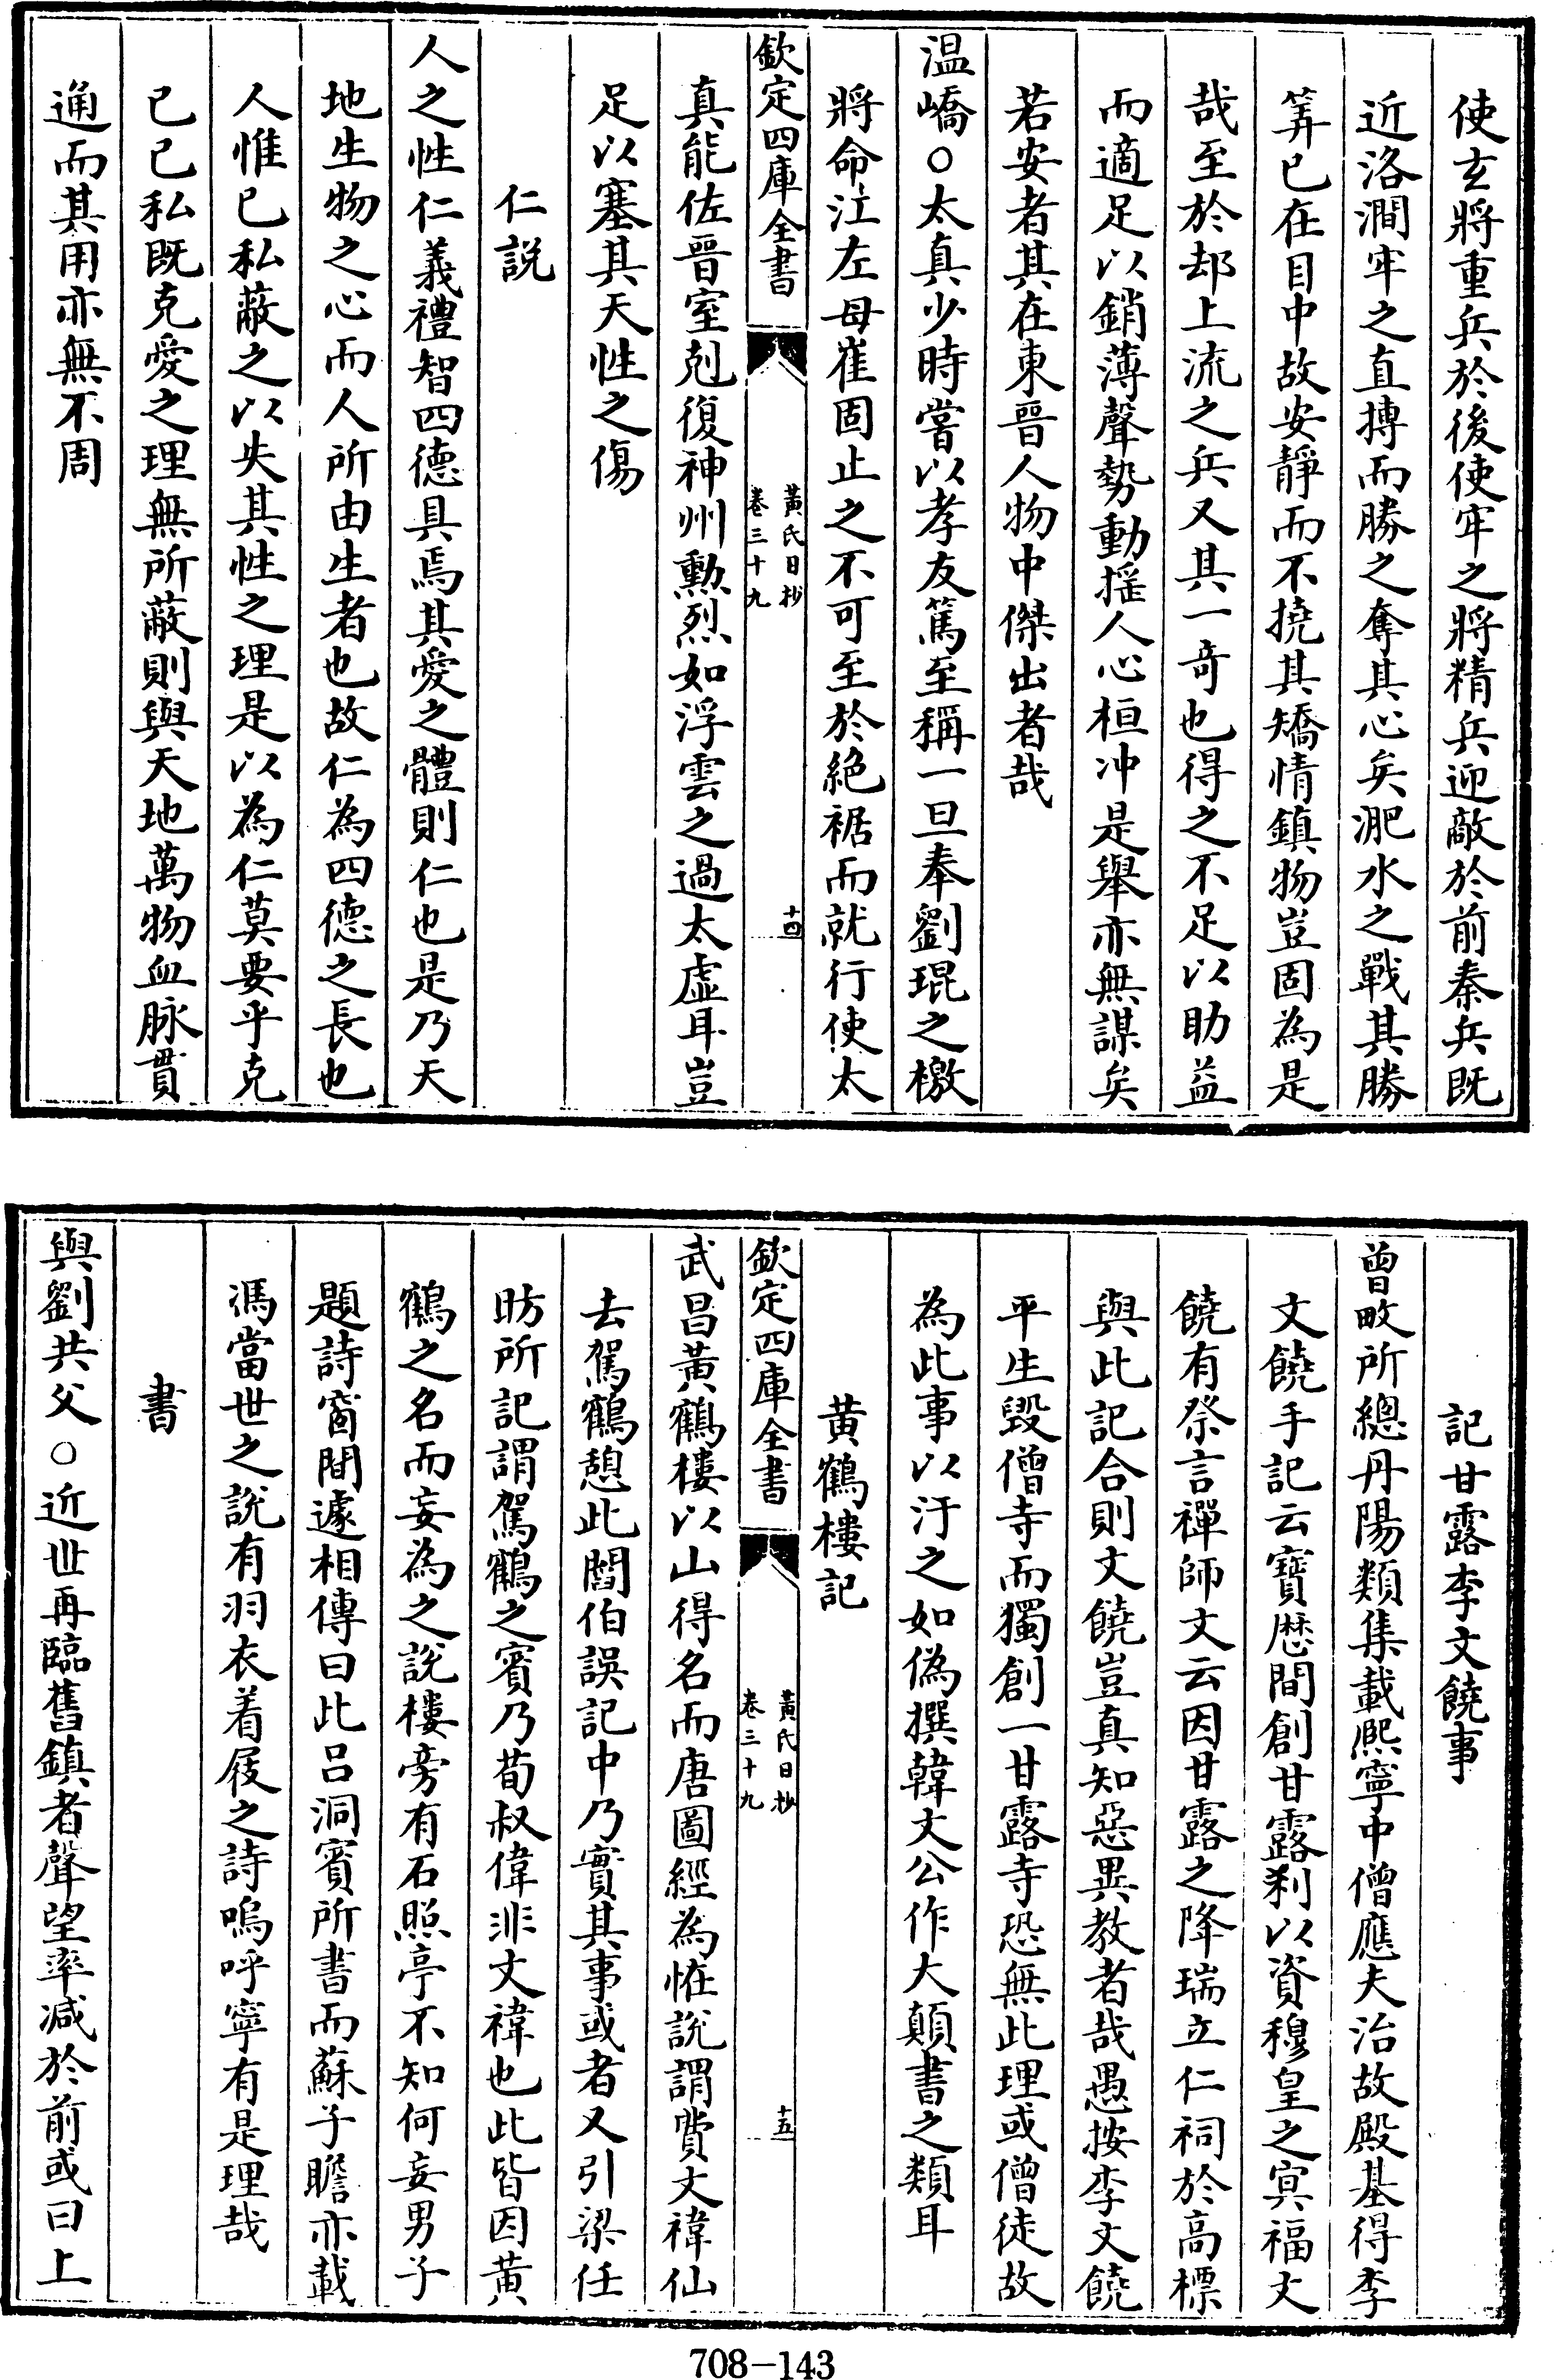 使玄將重兵於後使牢之將精兵迎敵於前秦兵既
近洛澗牢之直搏而勝之奪其心矣淝水之戰其勝
筭已在目中故安靜而不撓其矯情鎮物豈固為是
哉至於却上流之兵又其一奇也得之不足以助益
而適足以銷薄聲勢動揺人心桓冲是舉亦無謀矣
若安者其在東晉人物中傑出者哉
温嶠○太真少時嘗以孝友篤至稱一旦奉劉琨之檄
將命江左母崔固止之不可至於絶裾而就行使太
欽定四庫全書
黃氏日抄
卷三十九
十四
真能佐晉室剋復神州勲烈如浮雲之過太虛耳豈
足以塞其天性之傷
仁説
人之性仁義禮智四德具焉其愛之體則仁也是乃天
地生物之心而人所由生者也故仁為四德之長也
人惟已私蔽之以失其性之理是以為仁莫要乎克
已已私既克愛之理無所蔽則與天地萬物血脉貫
通而其用亦無不周
記甘露李文饒事
曾旼所總丹陽類集載熙寧中僧應夫治故殿基得李
文饒手記云寶厯間創甘露刹以資穆皇之㝠福文
饒有祭言禪師文云因甘露之降瑞立仁祠於高標
與此記合則文饒豈真知惡異教者哉愚按李文饒
平生毀僧寺而獨創一甘露寺恐無此理或僧徒故
為此事以汙之如偽撰韓文公作大顛書之類耳
黄鶴樓記
欽定四庫全書
黃氏日抄
卷三十九
十五
武昌黃鶴樓以山得名而唐圖經為恠說謂費文禕仙
去駕鶴憩此閻伯誤記中乃實其事或者又引梁任
昉所記謂駕鶴之賓乃荀叔偉非文禕也此皆因黄
鶴之名而妄為之說樓旁有石照亭不知何妄男子
題詩窗間遽相傳曰此呂洞賓所書而蘇子瞻亦載
馮當世之說有羽衣着屐之詩嗚呼寧有是理哉
書
與劉共父○近世再臨舊鎮者聲望率减於前或曰上
708-143